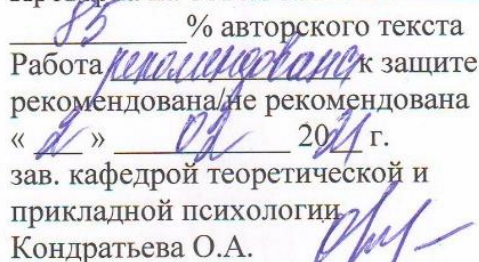 85 % авторского текста
Работа рекомендована к защите
рекомендована/не рекомендована
« 2 » 02 2021 г.
зав. кафедрой теоретической и
прикладной психологии
Кондратьева О.А.